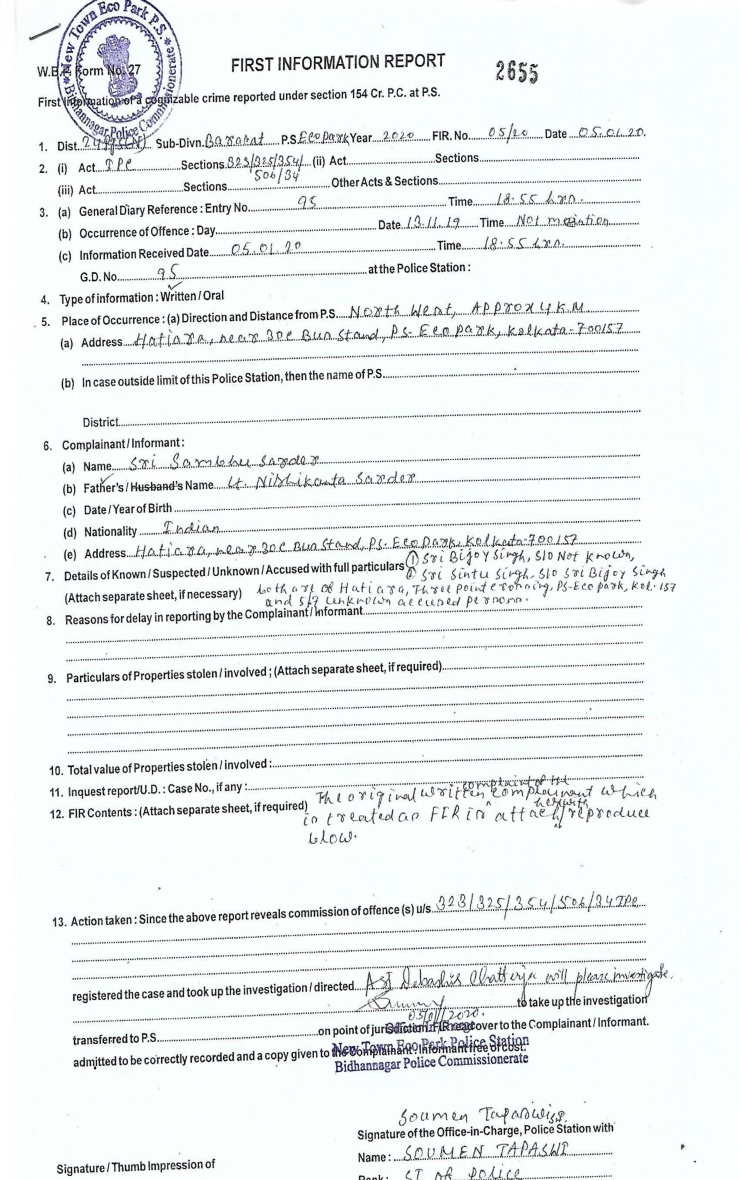 New Town Eco Park P.S.
Bidhannagar Police Commissionerate
FIRST INFORMATION REPORT
2655
W.B.P. Form No. 27
First Information of a cognizable crime reported under section 154 Cr. P.C. at P.S.
1. Dist. 24 Pgs(N) Sub-Divn. Barasat P.S. Eco Park Year 2020 FIR. No. 05/20 Date 05.01.20.
2. (i) Act IPC Sections 323/325/354/ (ii) Act Sections
506/34
(iii) Act Sections Other Acts & Sections
3. (a) General Diary Reference : Entry No. 95 Time 18.55 hrs.
(b) Occurrence of Offence : Day Date 13.11.19 Time Not maintion
(c) Information Received Date 05.01.20 Time 18.55 hrs.
G.D. No. 95 at the Police Station :
4. Type of information : Written / Oral
5. Place of Occurrence : (a) Direction and Distance from P.S. North West, APPROX 4 K.M.
(a) Address Hatiara, near 30c Bus Stand, PS- Eco park, Kolkata-700157
(b) In case outside limit of this Police Station, then the name of P.S.
District
6. Complainant / Informant :
(a) Name Sri Sambhu Sarder
(b) Father's / Husband's Name Lt. Nishikanta Sarder
(c) Date / Year of Birth
(d) Nationality Indian
(e) Address Hatiara, near 30c Bus Stand, PS- Eco Park, Kolkata-700157
7. Details of Known / Suspected / Unknown / Accused with full particulars ① Sri Bijoy Singh, S/O Not known,
② Sri Sintu Singh, S/O Sri Bijoy Singh
(Attach separate sheet, if necessary) both are of Hatiara, Three point crossing, PS-Eco park, Kol-157
and 5/7 unknown accused persons.
8. Reasons for delay in reporting by the Complainant / Informant
9. Particulars of Properties stolen / involved ; (Attach separate sheet, if required)
10. Total value of Properties stolen / involved :
11. Inquest report/U.D. : Case No., if any :
12. FIR Contents : (Attach separate sheet, if required) The original written complaint of the complainant which
is treated as FIR is attach herewith / reproduce
blow.
13. Action taken : Since the above report reveals commission of offence (s) u/s 323/325/354/506/34 IPC
registered the case and took up the investigation / directed ASI Debashis Chatterjee will please investigate.
to take up the investigation
05/01/2020.
transferred to P.S. on point of jurisdiction. FIR read over to the Complainant / Informant.
admitted to be correctly recorded and a copy given to the Complainant / Informant free of cost.
New Town Eco Park Police Station
Bidhannagar Police Commissionerate
Soumen Tapaswi
Signature of the Office-in-Charge, Police Station with
Name : SOUMEN TAPASWI
Signature / Thumb Impression of
Rank : SI OF POLICE